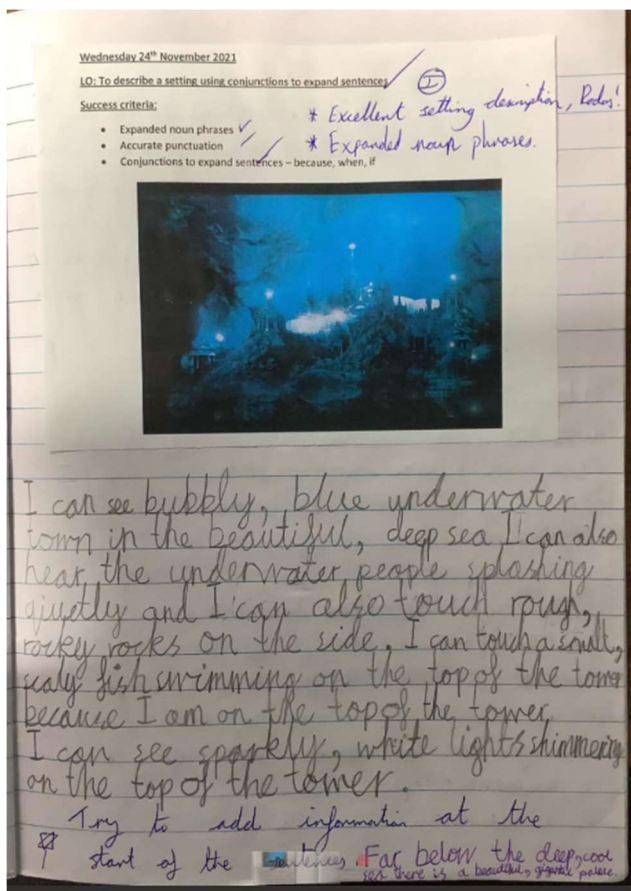 Wednesday 24th November 2021
LO: To describe a setting using conjunctions to expand sentences
Success criteria:
• Expanded noun phrases
• Accurate punctuation
• Conjunctions to expand sentences – because, when, if
I
* Excellent setting description,
* Expanded noun phrases.
I can see bubbly, blue underwater
town in the beautiful, deep sea I can also
hear the underwater people splashing
qiuetly and I can also touch rough,
rocky rocks on the side. I can touch a small,
scaly fish swimming on the top of the tower
because I am on the top of the tower.
I can see sparkly, white lights shimmering
on the top of the tower.
Try to add information at the
start of the sentences.
Far below the deep, cool
sea there is a beautiful, gigantic palace.